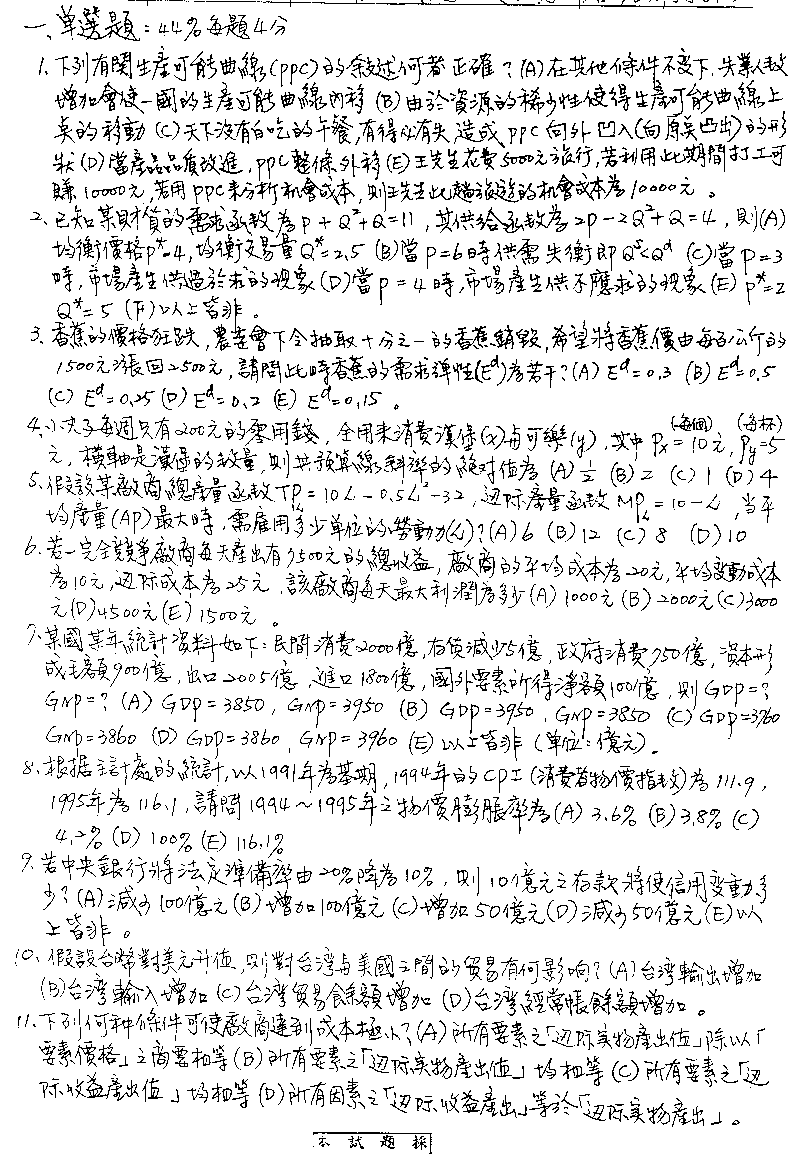 一、單選題：44% 每題4分
1. 下列有關生產可能曲線(PPC)的敘述何者正確？(A)在其他條件不變下,失業人數
增加會使一國的生產可能曲線內移 (B)由於資源的稀少性使得生產可能曲線上
點的移動 (C)天下沒有白吃的午餐,有得必有失,造成PPC向外凹入(向原點凸出)的形
狀 (D)當產品品質改進，PPC整條外移 (E)王先生花費5000元旅行,若利用此期間打工可
賺10000元,若用PPC來分析機會成本，則王先生此趟旅遊的機會成本為10000元。
2. 已知某財貨的需求函數為P+Q²+Q=11，其供給函數為2P-2Q²+Q=4，則(A)
均衡價格P*=4,均衡交易量Q*=2.5 (B)當P=6時供需失衡即Qˢ<Qᵈ (C)當P=3
時,市場產生供過於求的現象 (D)當P=4時,市場產生供不應求的現象 (E) P*=2
Q*=5 (F)以上皆非。
3. 香蕉的價格狂跌,農委會下令抽取十分之一的香蕉銷毀,希望將香蕉價由每百公斤的
1500元漲回2500元，請問此時香蕉的需求彈性(Eᵈ)為若干？(A) Eᵈ=0.3 (B) Eᵈ=0.5
(C) Eᵈ=0.25 (D) Eᵈ=0.2 (E) Eᵈ=0.15。
4. 小夫子每週只有200元的零用錢，全用來消費漢堡(x)與可樂(y)，其中Px=10元(每個), Py=5(每杯)
元，橫軸是漢堡的數量,則其預算線斜率的絕對值為 (A) ½ (B) 2 (C) 1 (D) 4
5. 假設某廠商總產量函數TP_L=10L-0.5L²-32，邊際產量函數MP_L=10-L，當平
均產量(AP)最大時，需雇用多少單位的勞動力(L)？(A) 6 (B) 12 (C) 8 (D) 10
6. 若一完全競爭廠商每天產出有7500元的總收益，廠商的平均成本為20元,平均變動成本
為10元,邊際成本為25元，該廠商每天最大利潤為多少 (A) 1000元 (B) 2000元 (C) 3000
元 (D) 4500元 (E) 1500元。
7. 某國某年統計資料如下：民間消費2000億,存貨減少5億，政府消費750億，資本形
成毛額900億，出口2005億，進口1800億，國外要素所得淨額100億，則GDP=?
GNP=? (A) GDP=3850，GNP=3950 (B) GDP=3950，GNP=3850 (C) GDP=3960
GNP=3860 (D) GDP=3860，GNP=3960 (E)以上皆非 (單位：億元)。
8. 根據主計處的統計,以1991年為基期，1994年的CPI(消費者物價指數)為111.9，
1995年為116.1，請問1994～1995年之物價膨脹率為 (A) 3.6% (B) 3.8% (C)
4.2% (D) 100% (E) 116.1%
9. 若中央銀行將法定準備率由20%降為10%，則10億元之存款將使信用變動多
少？(A)減少100億元 (B)增加100億元 (C)增加50億元 (D)減少50億元 (E)以
上皆非。
10. 假設台幣對美元升值,則對台灣與美國之間的貿易有何影响？(A)台灣輸出增加
(B)台灣輸入增加 (C)台灣貿易餘額增加 (D)台灣經常帳餘額增加。
11. 下列何种條件可使廠商達到成本極小？(A)所有要素之「边际實物產出值」除以「
要素價格」之商要相等 (B)所有要素之「边际實物產出值」均相等 (C)所有要素之「边
际收益產出值」均相等 (D)所有因素之「边际收益產出」等於「边际實物產出」。
本試題採